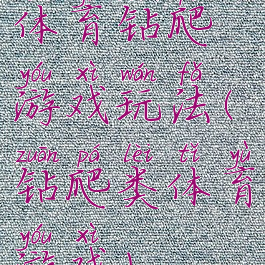 体育钻爬
yóu xì wán fǎ
游戏玩法(
zuān pá lèi tǐ yù
钻爬类体育
yóu xì
游戏)